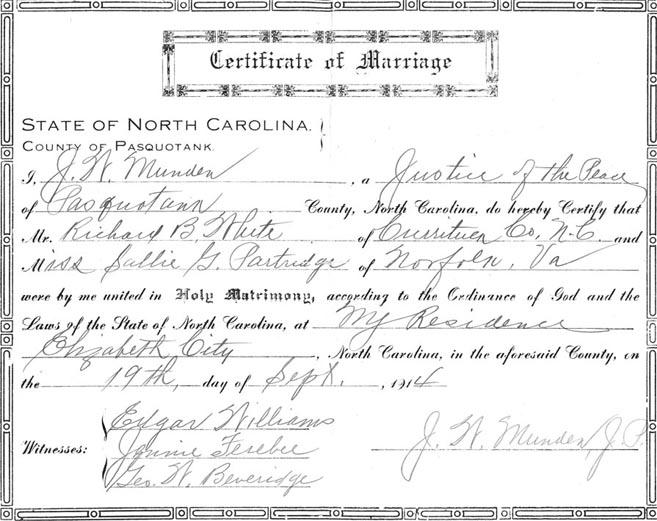 Certificate of Marriage
STATE OF NORTH CAROLINA.
COUNTY OF PASQUOTANK.
I, J. W. Munden, a Justice of the Peace
of Pasquotank County, North Carolina, do hereby Certify that
Mr. Richard B. White of Currituck Co, N.C. and
Miss Sallie G. Partridge of Norfolk, Va
were by me united in Holy Matrimony, according to the Ordinance of God and the
Laws of the State of North Carolina, at My Residence
Elizabeth City, North Carolina, in the aforesaid County, on
the 19th, day of Sept., 1914
Edgar Williams
Witnesses: Jennie Ferebee J. W. Munden, J.P.
Geo. W. Beveridge